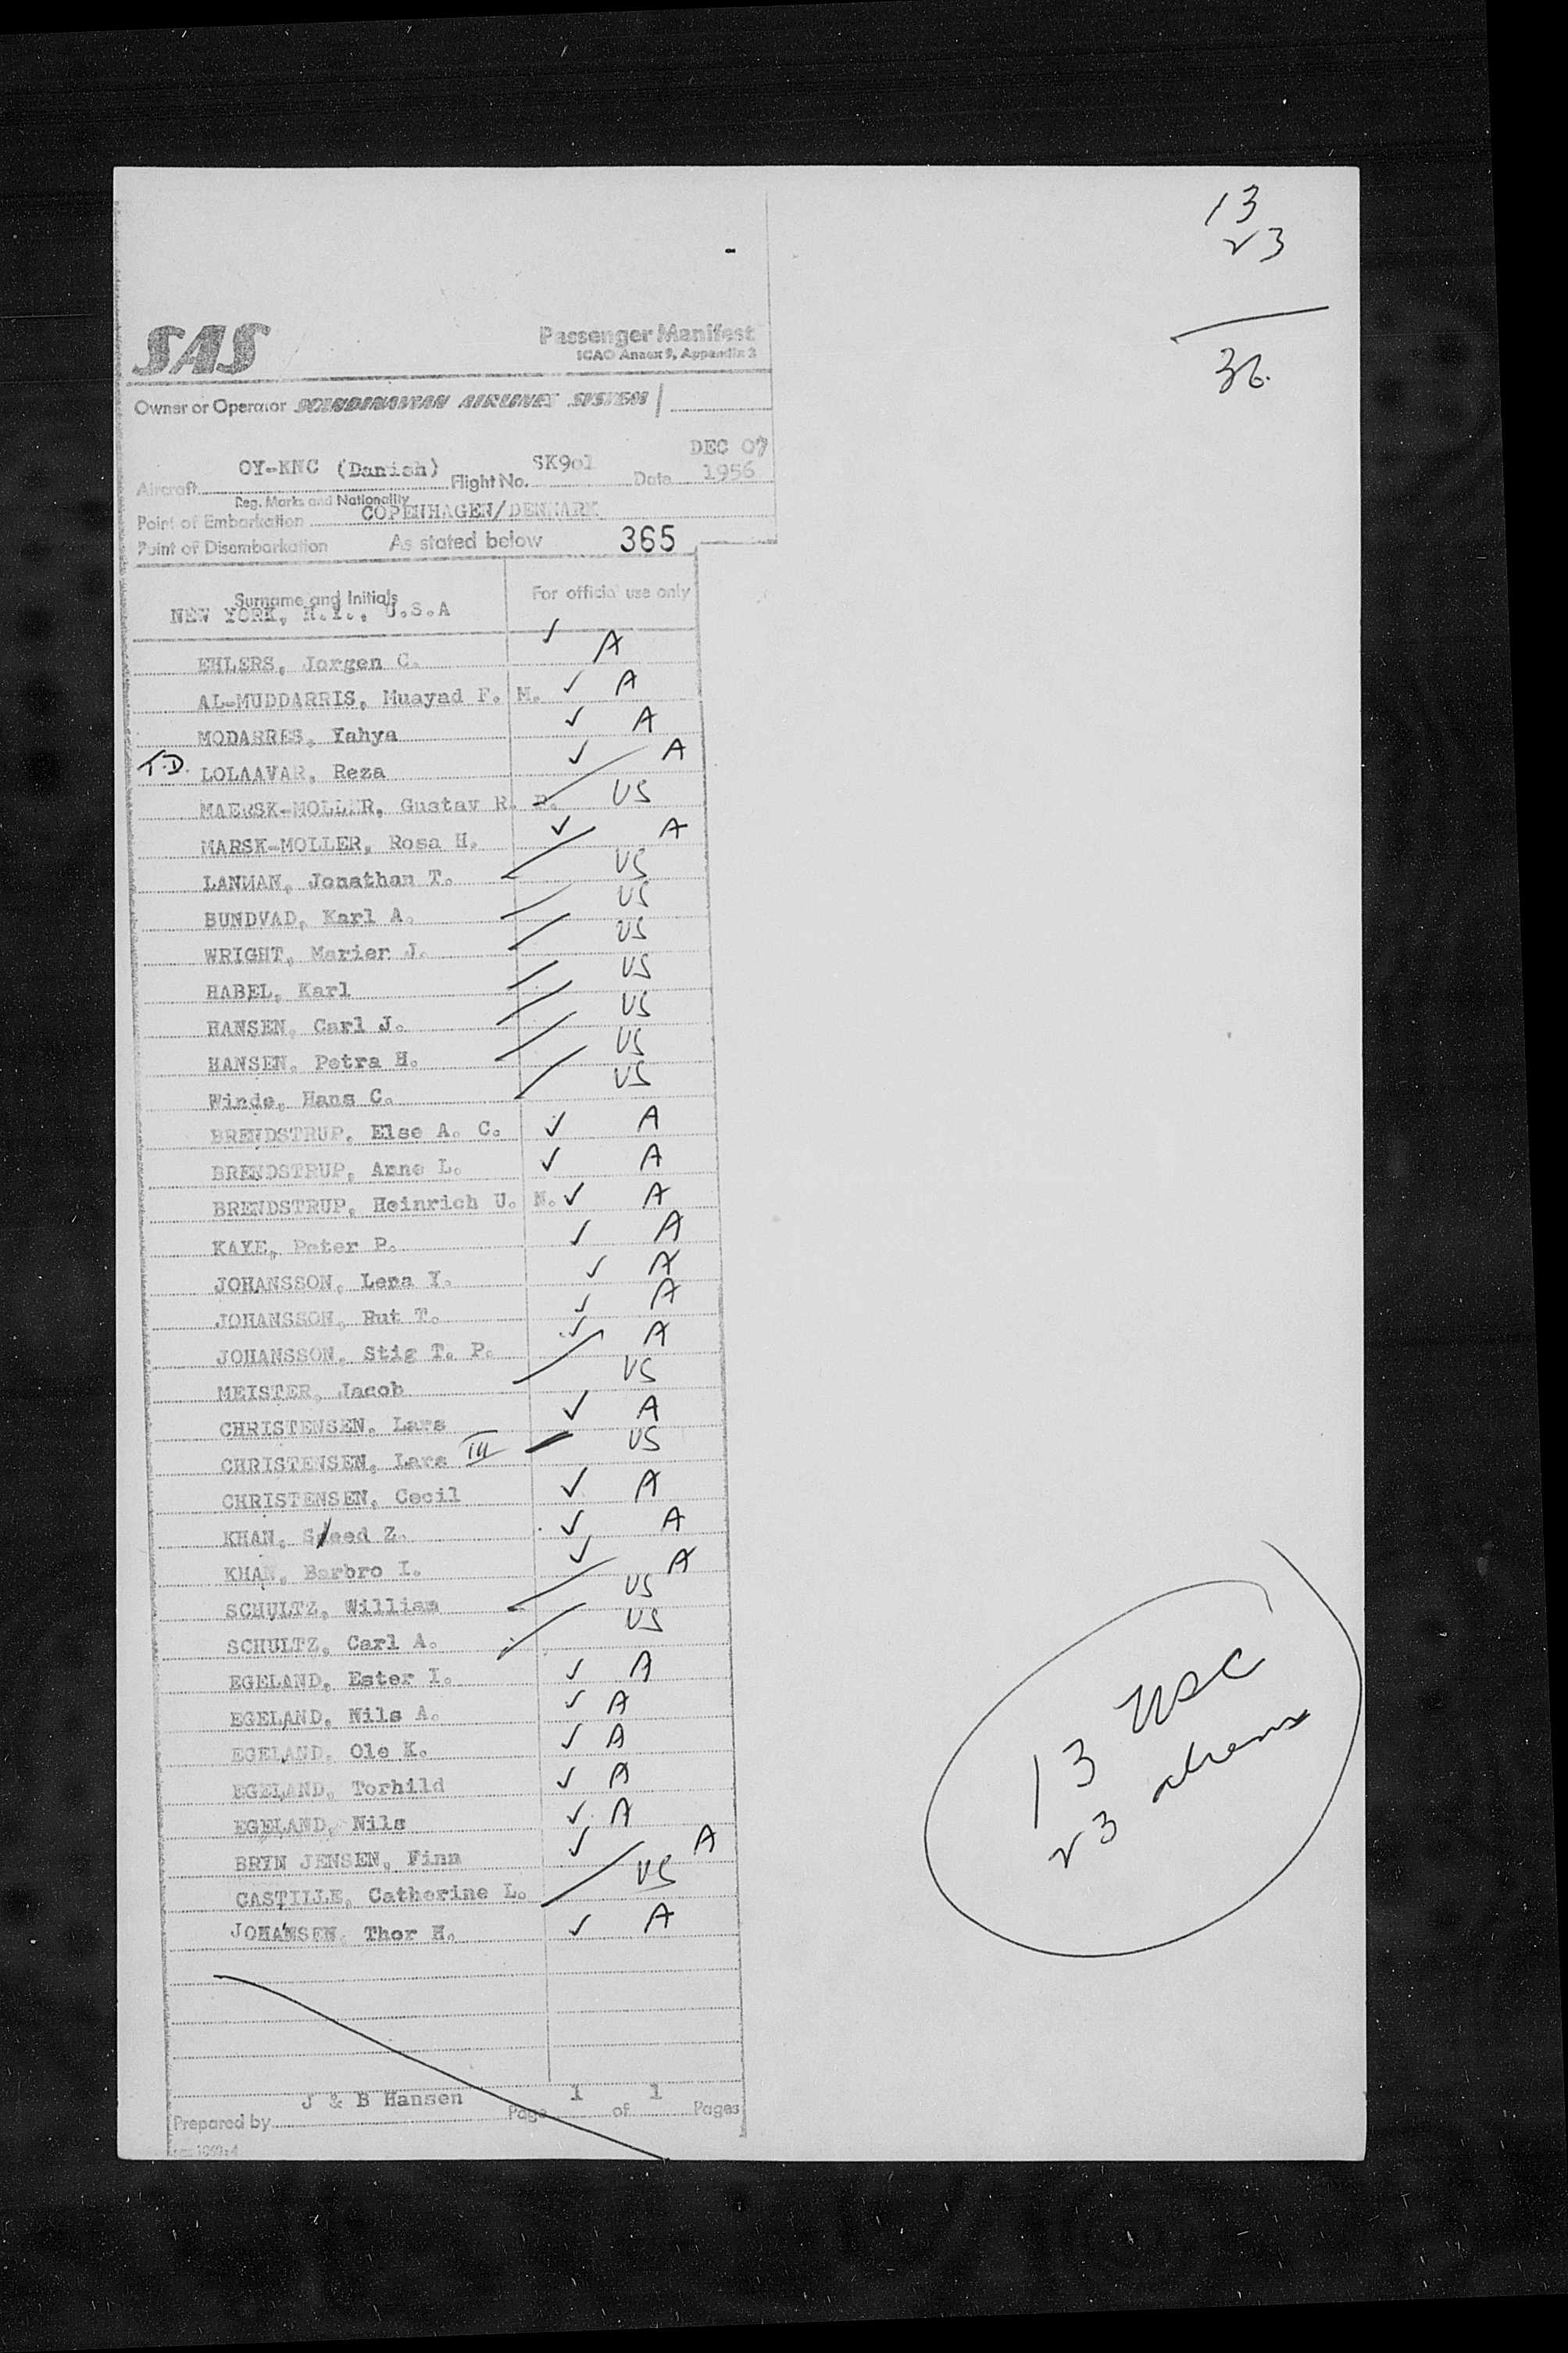 13
23
36.
SAS
Passenger Manifest
ICAO Annex 9, Appendix 3
Owner or Operator SCANDINAVIAN AIRLINES SYSTEM
DEC 07
Aircraft OY-KNC (Danish) Flight No. SK901 Date 1956
Reg. Marks and Nationality
Point of Embarkation COPENHAGEN/DENMARK
Point of Disembarkation As stated below 365
Surname and Initials For official use only
NEW YORK, N.Y., U.S.A
EHLERS, Jorgen C. ✓ A
AL-MUDDARRIS, Muayad F. M. ✓ A
MODARRES, Yahya ✓ A
T.D. LOLAAVAR, Reza ✓ A
MAERSK-MOLLER, Gustav R. P. US
MARSK-MOLLER, Rosa H. ✓ A
LANMAN, Jonathan T. US
BUNDVAD, Karl A. US
WRIGHT, Marier J. US
HABEL, Karl US
HANSEN, Carl J. US
HANSEN, Petra H. US
Winde, Hans C. US
BRENDSTRUP, Else A. C. ✓ A
BRENDSTRUP, Anne L. ✓ A
BRENDSTRUP, Heinrich U. N. ✓ A
KAYE, Peter P. ✓ A
JOHANSSON, Lena Y. ✓ A
JOHANSSON, Rut T. ✓ A
JOHANSSON, Stig T. P. ✓ A
MEISTER, Jacob US
CHRISTENSEN, Lars ✓ A
CHRISTENSEN, Lars III US
CHRISTENSEN, Cecil ✓ A
KHAN, Saeed Z. ✓ A
KHAN, Barbro I. ✓ A
SCHULTZ, William US
SCHULTZ, Carl A. US
EGELAND, Ester I. ✓ A
EGELAND, Nils A. ✓ A
EGELAND, Ole K. ✓ A
EGELAND, Torhild ✓ A
EGELAND, Nils ✓ A
BRYN JENSEN, Finn ✓ A
CASTILLE, Catherine L. US
JOHANSEN, Thor H. ✓ A
13 USC
23 aliens
Prepared by J & B Hansen Page 1 of 1 Pages